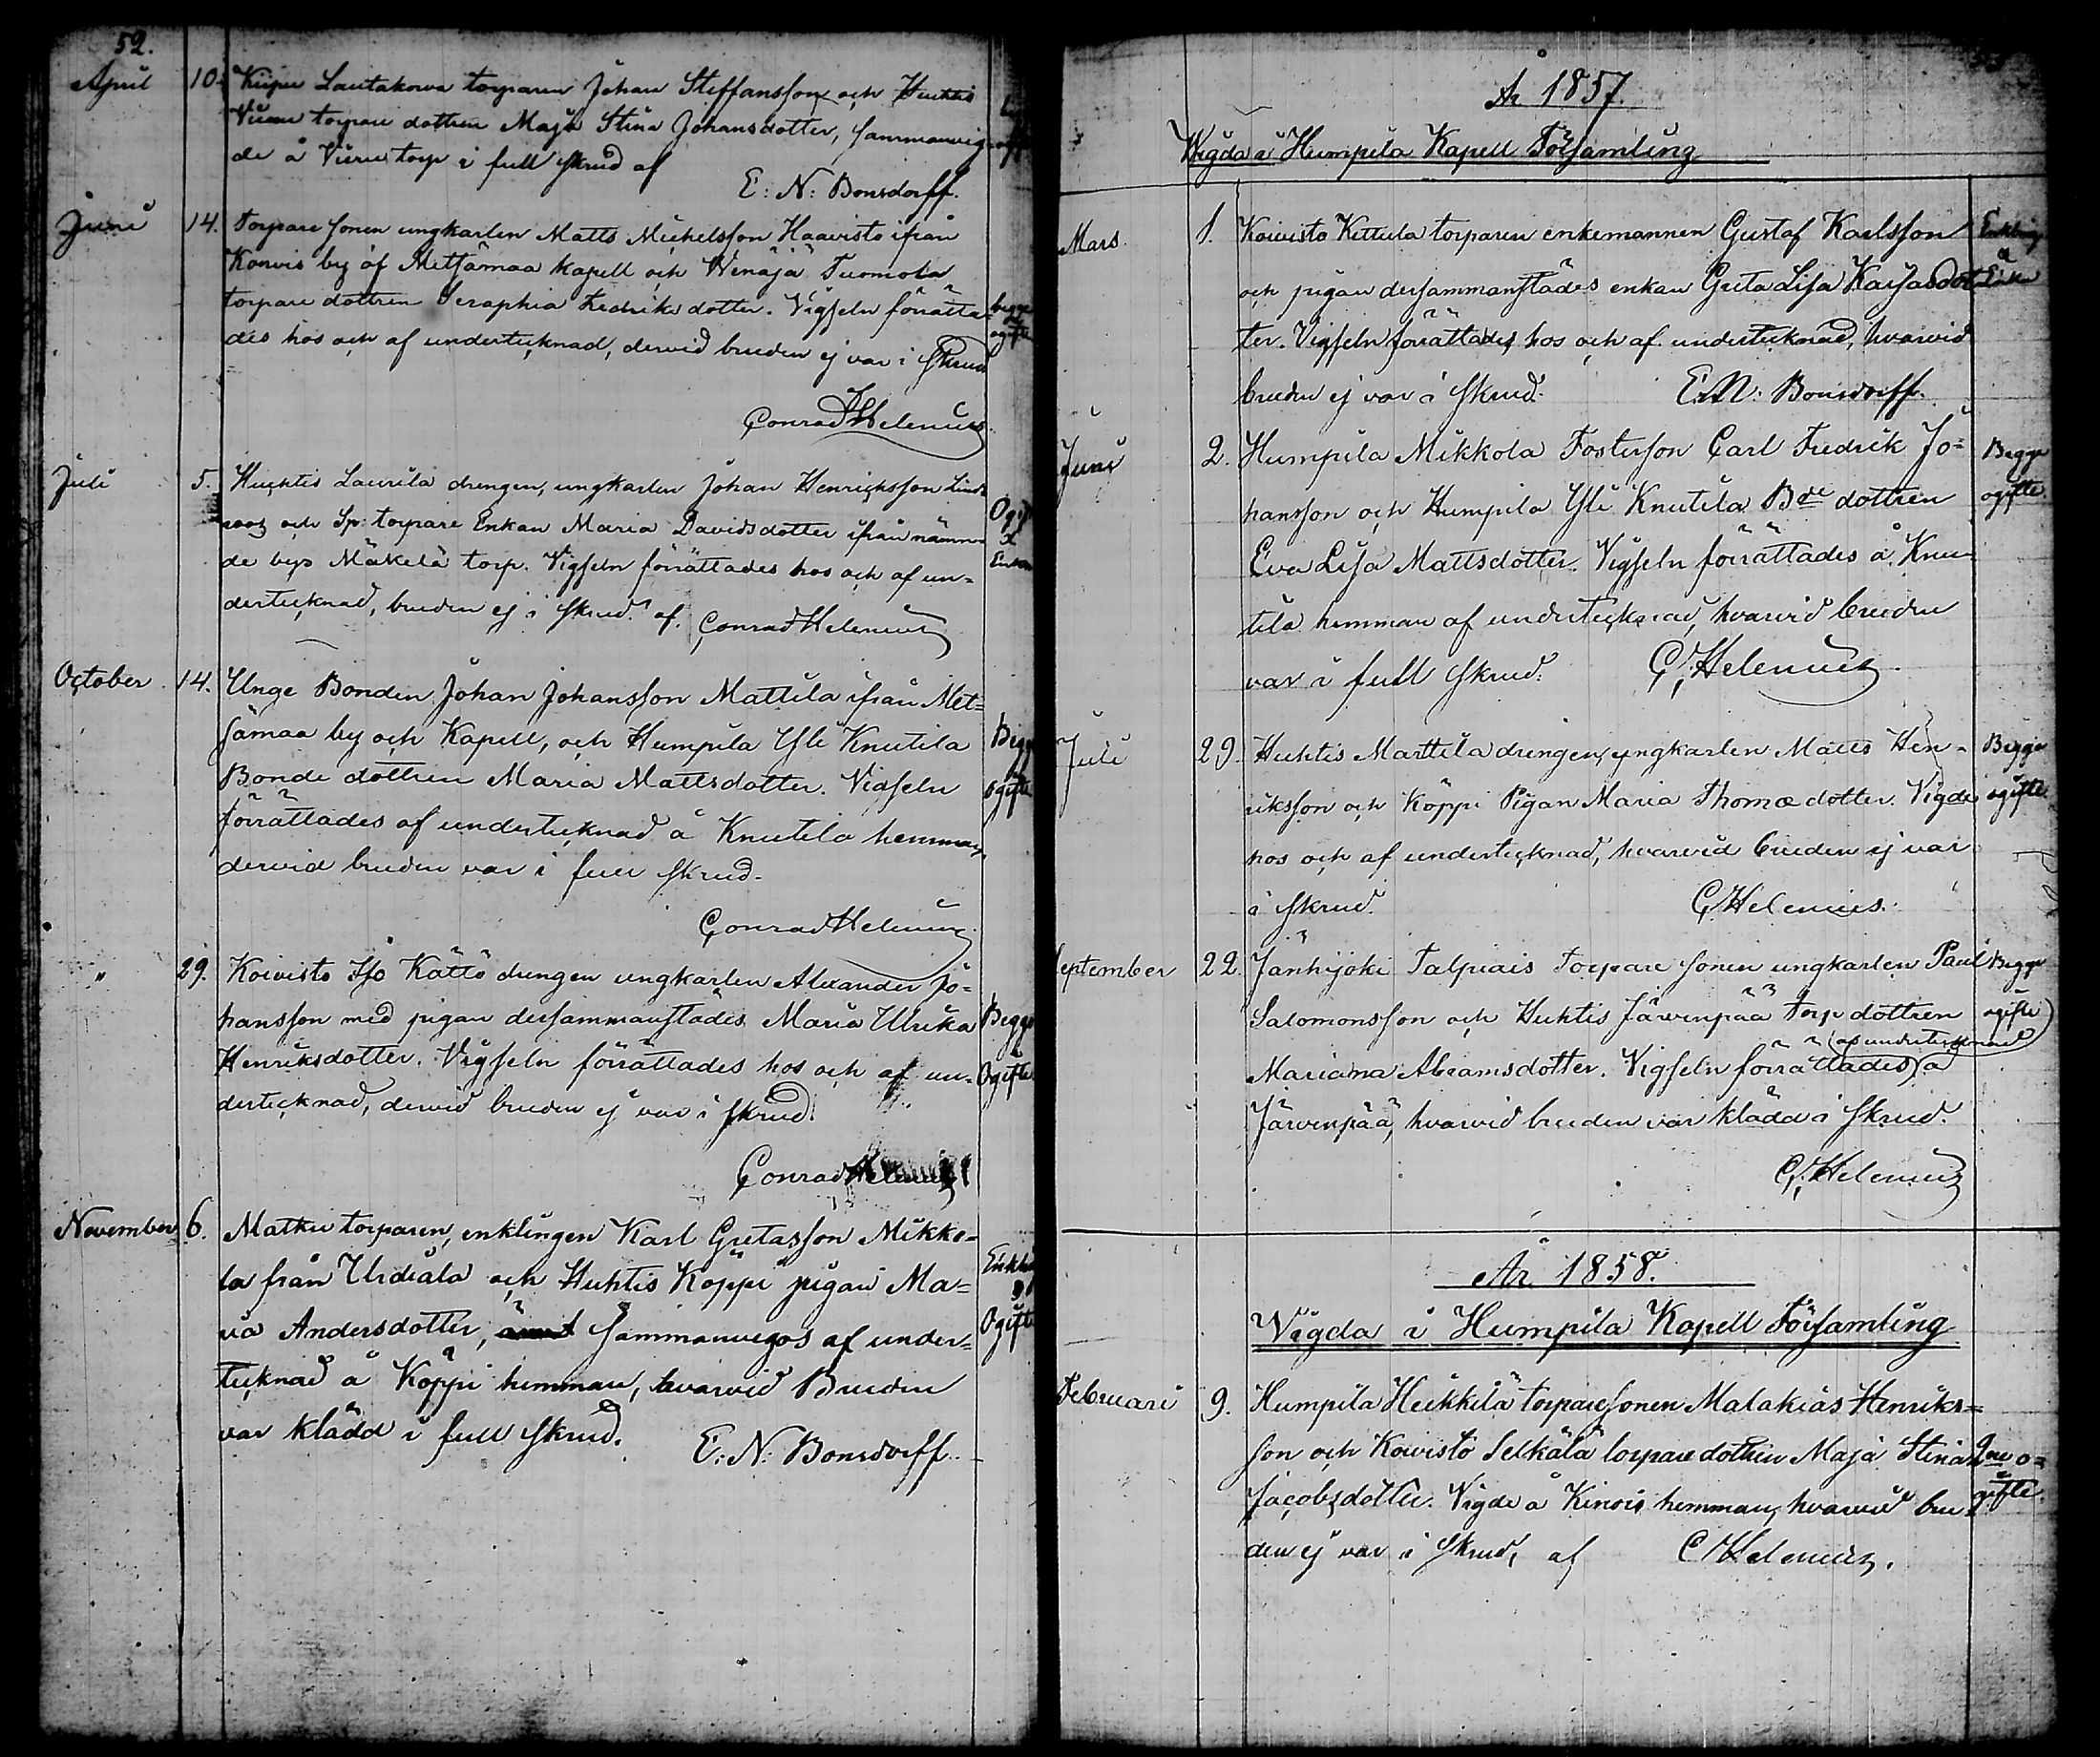 52.
April 10. Kiipu Lautakorva torparen Johan Steffansson och Huhtis
torpare dottren Maja Stina Johansdotter, sammanvig-
de å torp i full skrud af
E: N: Bonsdorff.
Juni 14. Torpare sonen ungkarlen Matts Michelsson Haavisto ifrån
Korvis by af Metsämaa kapell och Wenäjä Tuomola
torpare dottren Seraphia Fredriksdotter. Vigseln förrätta- begge
des hos och af undertecknad, dervid bruden ej var i Skrud ogifte
Conrad Helenius
Juli 5. Huhtis Laurila drengen, ungkarlen Johan Henricksson Lind-
roos och Sp: torpare Enkan Maria Davidsdotter ifrån nämn-
de bys Mäkelä torp. Vigseln förrättades hos och af un-
dertecknad, bruden ej i skrud. af. Conrad Helenius
October 14. Unge Bonden Johan Johansson Mattila ifrån Met=
sämaa by och Kapell, och Humpila Yli Knutila
Bonde dottren Maria Mattsdotter. Vigseln ogifte
förrättades af undertecknad å Knutila hemman,
dervid bruden var i full skrud.
Conrad Helenius
" 29. Koivisto Iso Kättö drengen ungkarlen Alexander Jo=
hansson med pigan dersammanstädes Maria Ulrika Begge
Henriksdotter. Vigseln förrättades hos och af un- Ogifte
dertecknad, dervid bruden ej var i skrud.
Conrad Helenius
November 6. Matku torparen, enklingen Karl Gustafsson Mikko-
la från Urdiala och Huhtis Köppi pigan Ma=
ria Andersdotter, sammanvigos af under= Ogift
tecknad å Köppi hemman, hvarvid Bruden
var klädd i full skrud.
E: N: Bonsdorff.
År 1857.
Wigda i Humpila Kapell Församling
Mars. 1. Koivisto Kettula torparen enkemannen Gustaf Karlsson Enkling
och pigan dersammanstädes enkan Greta Lisa Karlsdot- Enka
ter. Vigseln förrättades hos och af undertecknad, hvarvid
bruden ej var i skrud. E.N: Bonsdorff.
Juni 2. Humpila Mikkola Fosterson Carl Fredrik Jo= Begge
hansson och Humpila Yli Knutila Bde dottren ogifte.
Eva Lisa Mattsdotter. Vigseln förrättades å Knu-
tila hemman af undertecknad, hvarvid bruden
var i full skrud. C, Helenius
Juli 29. Huhtis Marttila drengen, ungkarlen Matts Hen- Begge
riksson och Köppi Pigan Maria Thomædotter. Vigde ogifte
hos och af undertecknad, hvarvid bruden ej var
i skrud. C, Helenius.
September 22. Jänhijoki Talpiais Torpare sonen ungkarlen Paul Begge
Salomonsson och Huhtis Järvenpää Torp dottren ogifte
(af undertecknad)
Mariana Abramsdotter. Vigseln förrättades å
Järvenpää, hvarvid bruden var klädd i skrud.
C, Helenius
År 1858.
Vigda i Humpila Kapell Församling
Februari 9. Humpila Heikkilä torparesonen Malakias Henriks=
son och Koivisto Selkälä torpare dottren Maja Stina o=
Jacobsdotter. Vigde å hemman, hvarvid bru- gifte.
den ej var i skrud, af C Helenius.